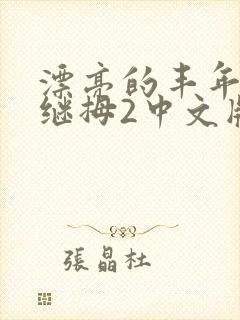 漂亮的丰年
继拇2中文版
張晶杜